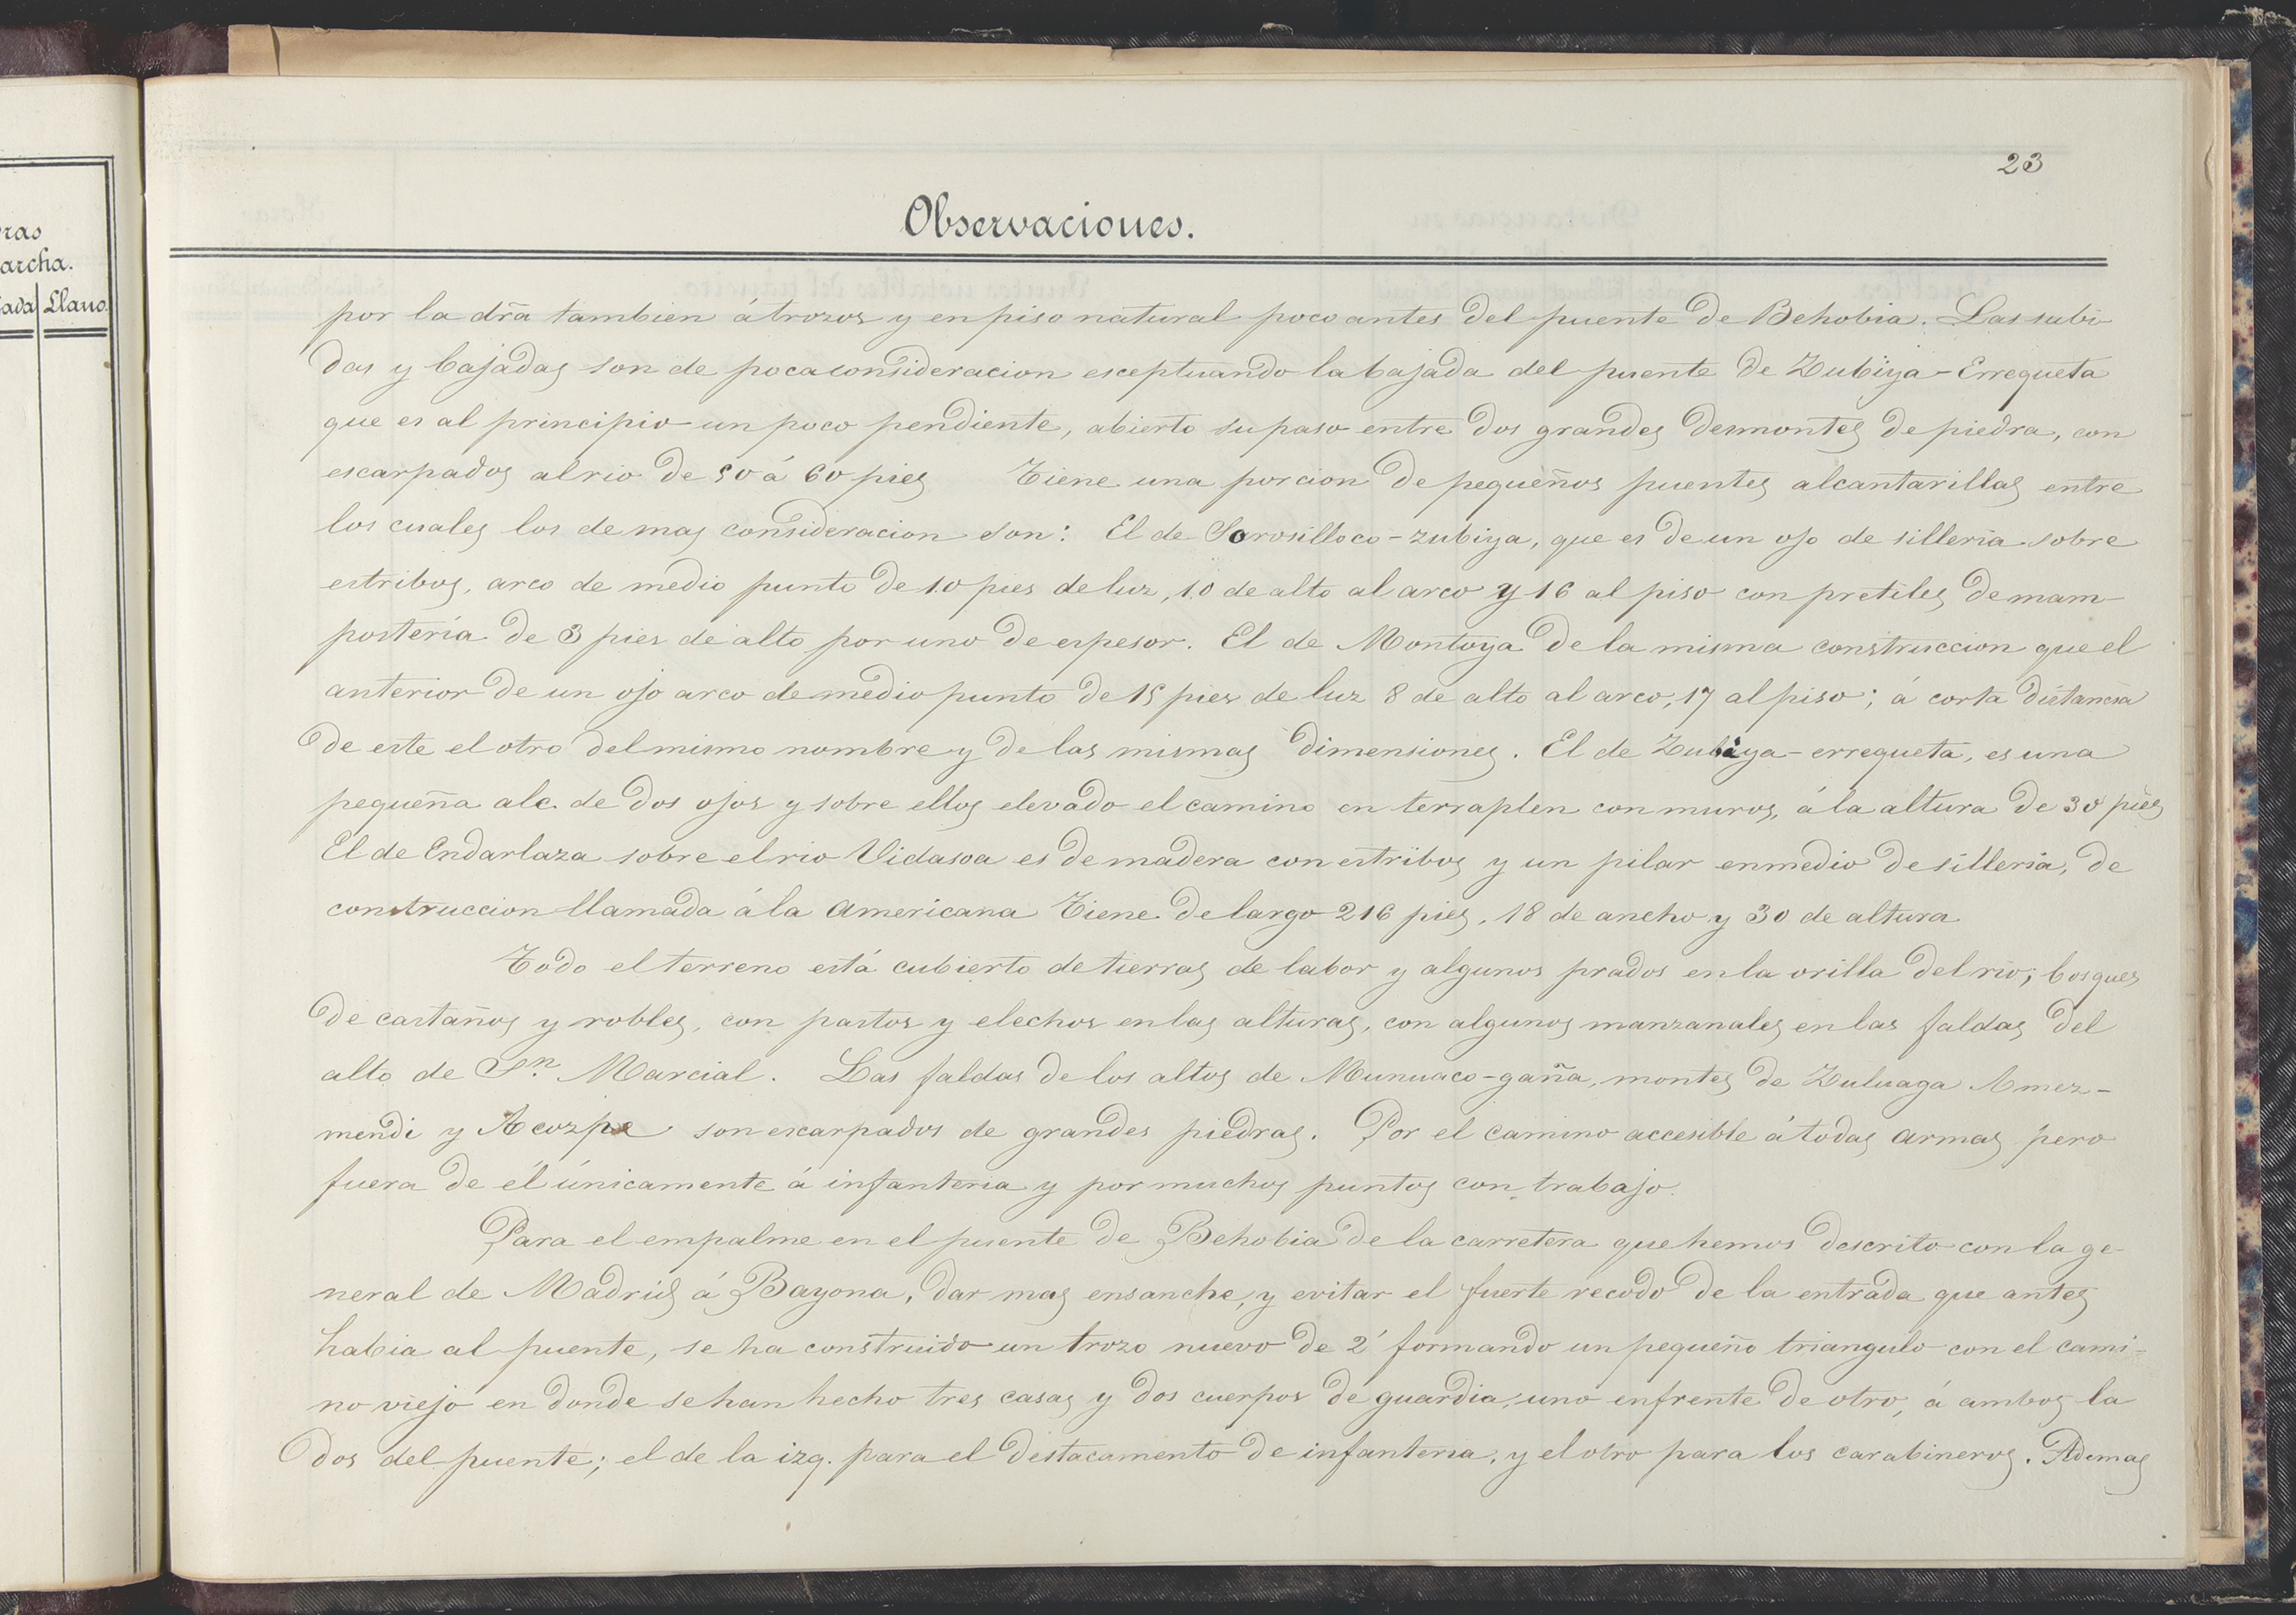 23
Observaciones.
ras
archa.
ada Llano.
por la dr̃a tambien á trozos y en piso natural poco antes del puente de Behobia. Las subi
das y bajadas son de poca consideracion esceptuando la bajada del puente de Zubiya-Errequeta
que es al principio un poco pendiente, abierto su paso entre dos grandes desmontes de piedra, con
escarpados al rio de 50 á 60 pies Tiene una porcion de pequeños puentes alcantarillas entre
los cuales los de mas consideracion son: El de Sorosilloco-zubiya, que es de un ojo de silleria sobre
estribos, arco de medio punto de 10 pies de luz, 10 de alto al arco y 16 al piso con pretiles de mam-
posteria de 3 pies de alto por uno de espesor. El de Montoya de la misma construccion que el
anterior de un ojo arco de medio punto de 15 pies de luz 8 de alto al arco, 17 al piso; á corta distancia
de este el otro del mismo nombre y de las mismas dimensiones. El de Zubiya-errequeta, es una
pequeña alc. de dos ojos y sobre ellos elevado el camino en terraplen con muros, á la altura de 30 pies
El de Endarlaza sobre el rio Vidasoa es de madera con estribos y un pilar enmedio de silleria, de
construccion llamada á la Americana Tiene de largo 216 pies, 18 de ancho y 30 de altura
Todo el terreno está cubierto de tierras de labor y algunos prados en la orilla del rio; bosques
de castaños y robles, con pastos y elechos en las alturas, con algunos manzanales en las faldas del
alto de Sn. Marcial. Las faldas de los altos de Munuaco-gaña, montes de Zuluaga Amez-
mendi y son escarpados de grandes piedras. Por el camino accesible á todas armas pero
fuera de él únicamente á infanteria y por muchos puntos con trabajo.
Para el empalme en el puente de Behobia de la carretera que hemos descrito con la ge-
neral de Madrid á Bayona, dar mas ensanche, y evitar el fuerte recodo de la entrada que antes
habia al puente, se ha construido un trozo nuevo de 2' formando un pequeño triangulo con el cami-
no viejo en donde se han hecho tres casas y dos cuerpos de guardia, uno enfrente de otro, á ambos la
dos del puente; el de la izq. para el destacamento de infanteria, y el otro para los carabineros. Ademas